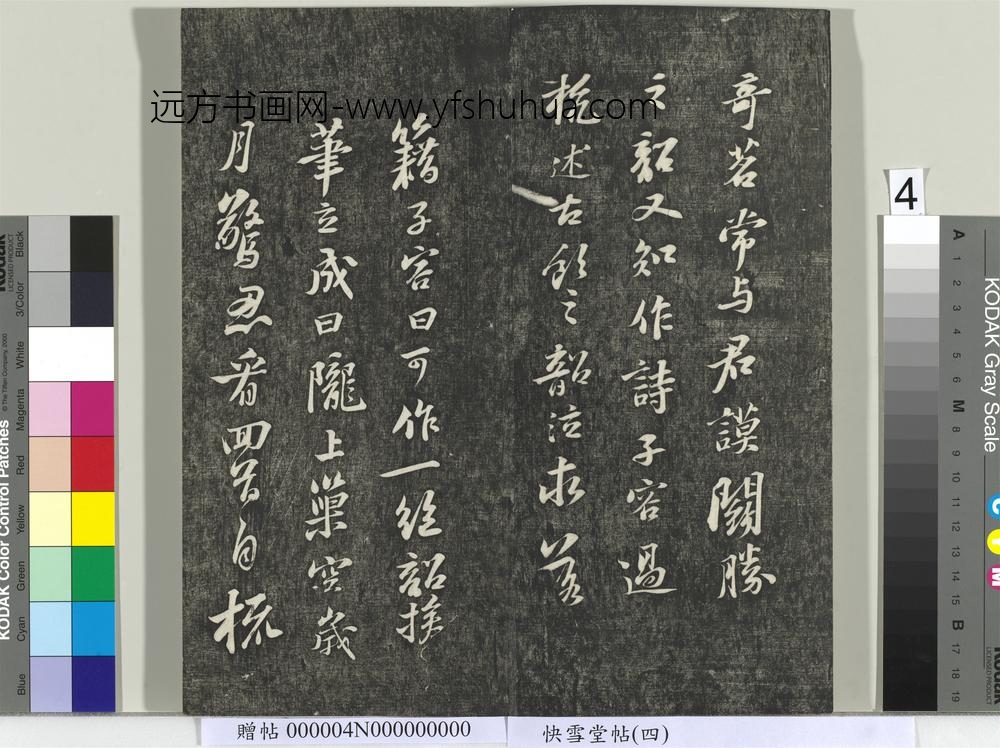 远方书画网-www.yfshuhua.com
奇茗常与君謨鬬勝
之韶又知作詩子容過
杭述古飲之韶泣求落
籍子容曰可作一絕韶援
筆立成曰隴上巢空歲
月驚忍看回首自梳
4
KODAK Color Control Patches
© The Tiffen Company, 2000
Kodak
LICENSED PRODUCT
Blue
Cyan
Green
Yellow
Red
Magenta
White
3/Color
Black
KODAK Gray Scale
Kodak
LICENSED PRODUCT
C
Y
M
A 1 2 3 4 5 6 M 8 9 10 11 12 13 14 15 B 17 18 19
贈帖 000004N000000000
快雪堂帖(四)